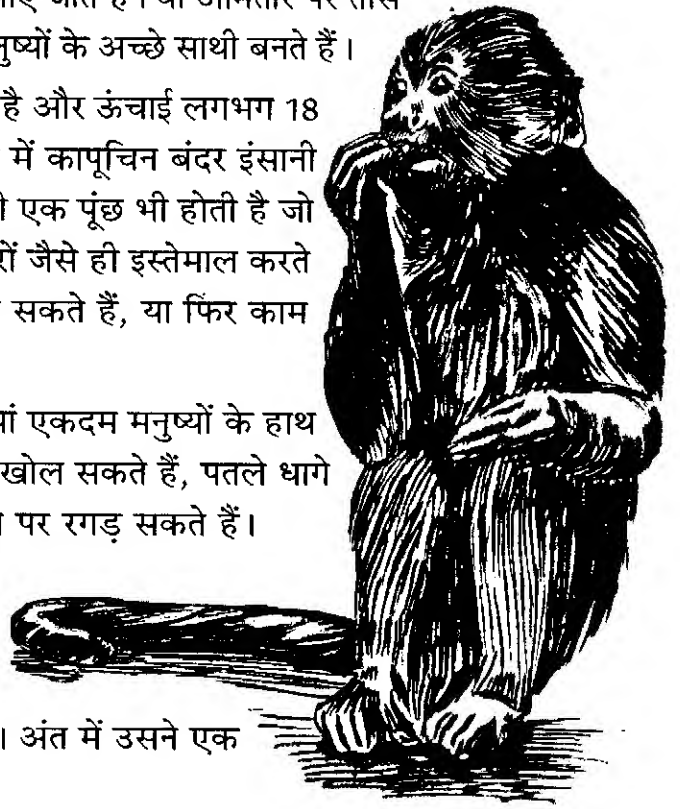 जाते हैं। वे आमतौर पर तीस
नुष्यों के अच्छे साथी बनते हैं।
है और ऊंचाई लगभग 18
में कापूचिन बंदर इंसानी
एक पूंछ भी होती है जो
जैसे ही इस्तेमाल करते
सकते हैं, या फिर काम
एकदम मनुष्यों के हाथ
खोल सकते हैं, पतले धागे
पर रगड़ सकते हैं।
। अंत में उसने एक